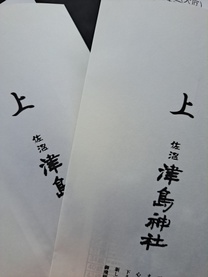 上
佐沼
津島神社
上
佐沼
津島